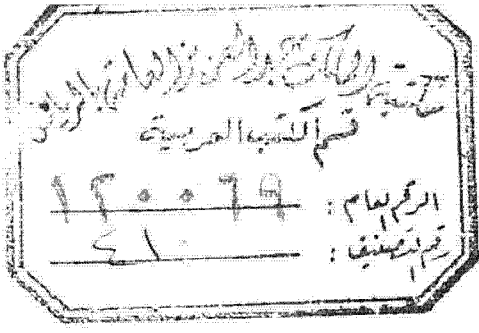 مكتبة الملك عبدالعزيز العامة بالرياض
قسم الكتب العربية
الرقم العام : ١٢٠٠٦٩
رقم التصنيف : ٤١٠